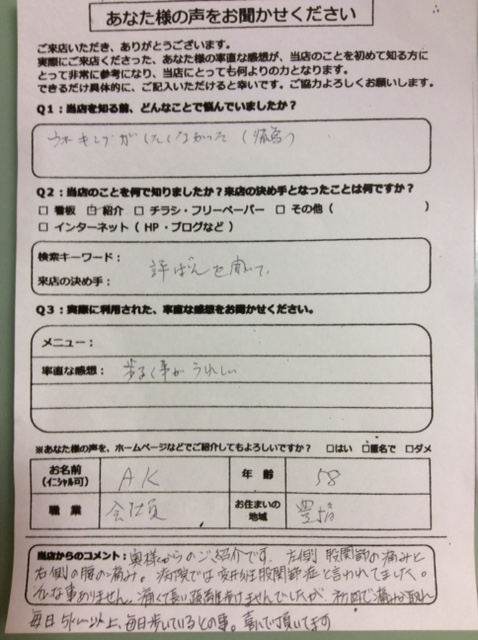 あなた様の声をお聞かせください
ご来店いただき、ありがとうございます。
実際にご来店くださった、あなた様の率直な感想が、当店のことを初めて知る方に
とって非常に参考になり、当店にとっても何よりの力となります。
できるだけ具体的に、ご記入いただけると幸いです。ご協力よろしくお願いします。
Q1:当店を知る前、どんなことで悩んでいましたか?
Q2:当店のことを何で知りましたか?来店の決め手となったことは何ですか?
□ 看板 □ 紹介 □ チラシ・フリーペーパー □ その他( )
□ インターネット( HP・ブログなど )
検索キーワード:
来店の決め手: 評ばんを聞いて
Q3:実際に利用された、率直な感想をお聞かせください。
メニュー:
率直な感想: 歩く事がうれしい
※あなた様の声を、ホームページなどでご紹介してもよろしいですか? □はい □匿名で □ダメ
お名前 (イニシャル可) AK 年齢 58
職業 会社員 お住まいの地域 豊橋
当店からのコメント:奥様からのご紹介です。左側 股関節の痛みと
右側の腰の痛み。病院では変形性股関節症と言われてました。
そんな事ありません。痛くて長い距離歩けませんでしたが、初回で痛みが取れ
毎日 以上、毎日歩いているとの事。喜んで頂いてます